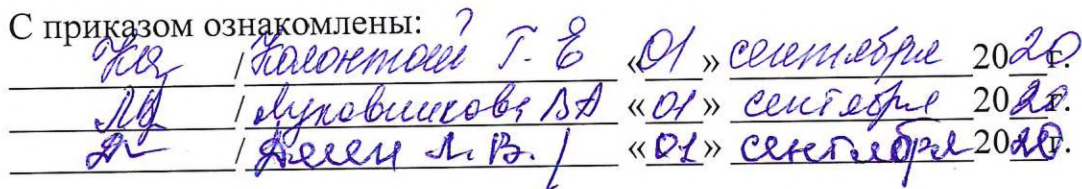 С приказом ознакомлены:
/ Колонтай Т. Е «01» сентября 2020г.
/ Луковникова ВА «01» сентября 2020г.
/ Л. В. / «01» сентября 2020г.